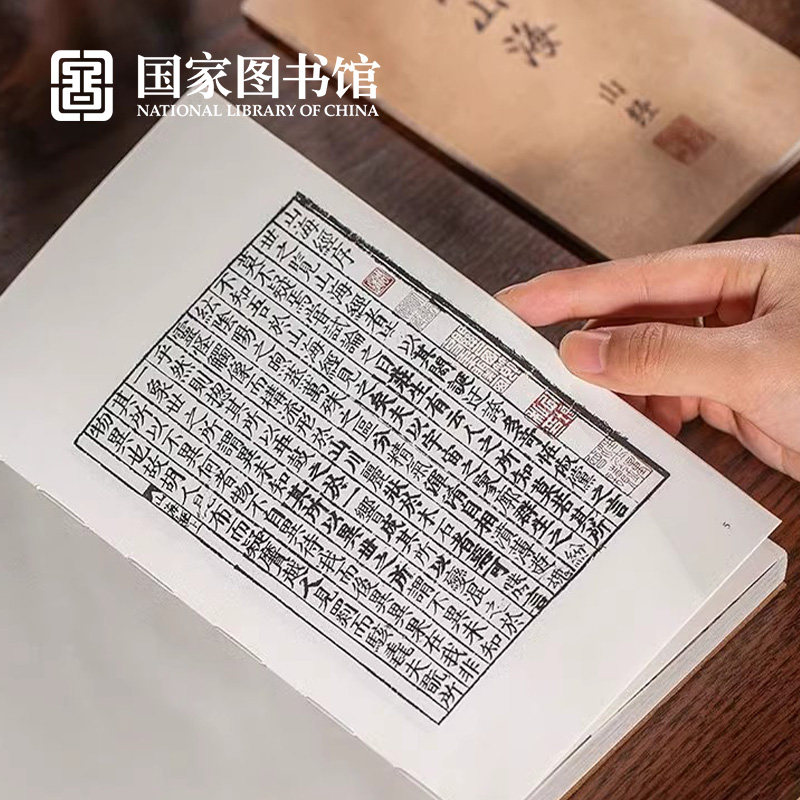 国家图书馆
NATIONAL LIBRARY OF CHINA
山海
山經
山海經序
世之覽山海經者皆以其閎誕迂誇多奇怪俶儻之言
莫不疑焉嘗試論之曰莊生有云人之所知莫若其所
不知吾於山海經見之矣夫以宇宙之寥廓羣生之紛
紜陰陽之煦蒸萬殊之區分精氣渾淆自相濆薄遊魂
靈怪觸象而構流形於山川麗狀於木石者惡可勝言
乎然則總其所以乖鼓之於一響成其所以變混之於
一象世之所謂異未知其所以異世之所謂不異未知
其所以不異何者物不自異待我而後異異果在我非
物異也故胡人見布而疑黂越人見罽而駭毳夫翫所
5